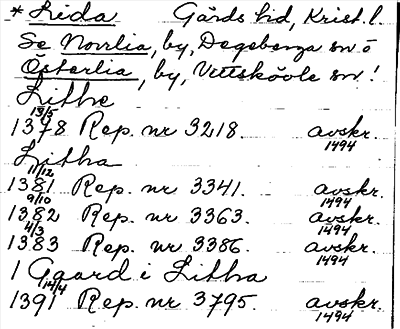 * Lida Gärds hd, Krist. l.
Se Norrlia, by, Degeberga sn o
Österlia, by, Vittskövle sn!
Lithe
13/5
1378 Rep. nr 3218. avskr.
1494
Litha
11/12
1381 Rep. nr 3341. avskr.
1494
9/10
1382 Rep. nr 3363. avskr.
1494
4/3
1383 Rep. nr 3386. avskr.
1494
1 Gaard i Litha
14/4
1391 Rep. nr 3795. avskr.
1494